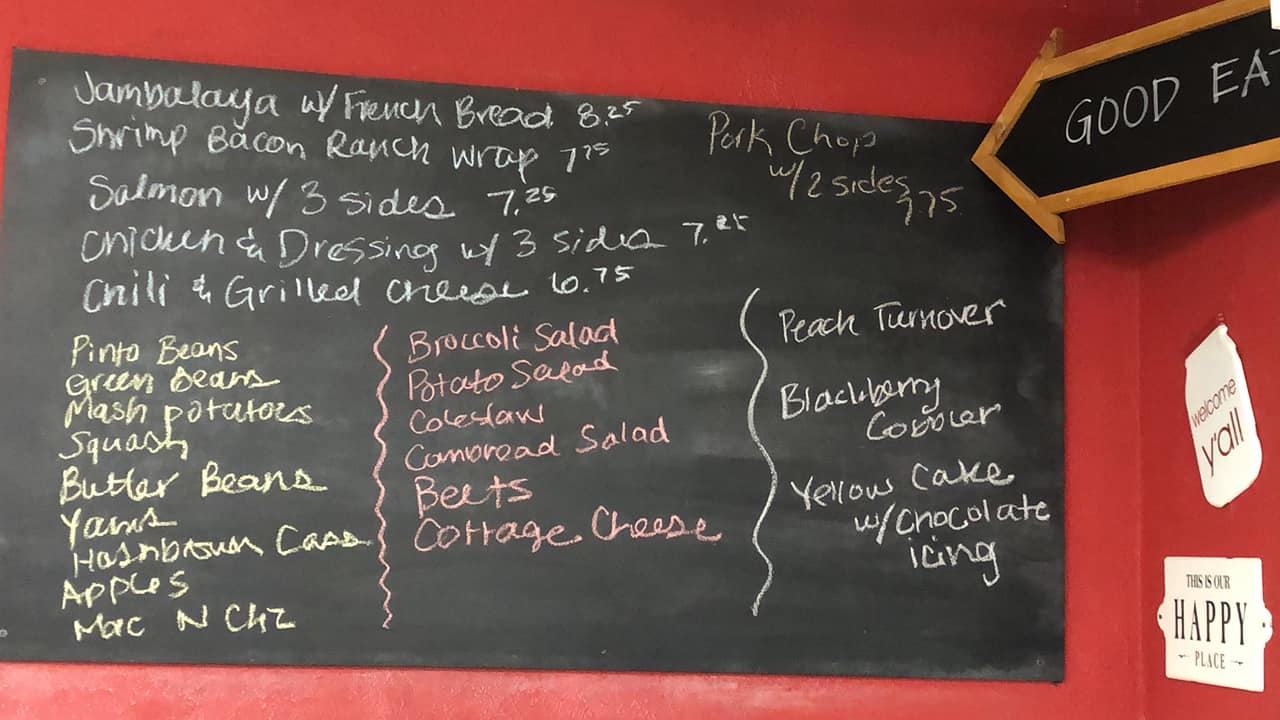 Jambalaya w/ French Bread 8.25
Shrimp Bacon Ranch Wrap 7.75
Salmon w/ 3 sides 7.25
Chicken & Dressing w/ 3 sides 7.25
Chili & Grilled Cheese 6.75
Pork Chop
w/ 2 sides
7.75
Pinto Beans
Green Beans
Mash potatoes
Squash
Butter Beans
Yams
Hashbrown Cass
Apples
Mac N Chz
Broccoli Salad
Potato Salad
Coleslaw
Cornbread Salad
Beets
Cottage Cheese
Peach Turnover
Blackberry
Cobbler
Yellow Cake
w/ Chocolate
icing
GOOD EAT
welcome
y'all
THIS IS OUR
HAPPY
PLACE